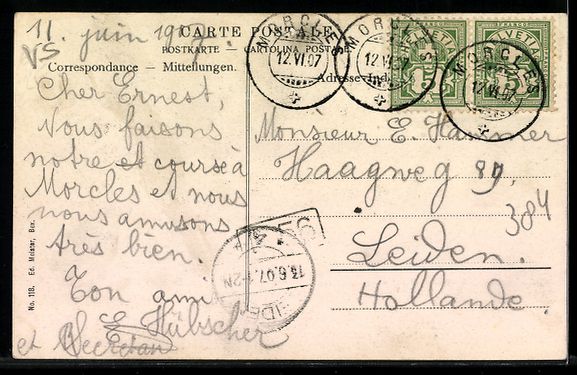 11. juin 1907.
VS
CARTE POSTALE
POSTKARTE — CARTOLINA POSTALE
Correspondance — Mitteilungen.
Adresse
Cher Ernest,
Nous faisons
notre course à
Morcles et nous
nous amusons
très bien.
Ton ami
E. Hübscher
et Secretan
No. 118. Ed. Meister, Bex.
MORCLES
12.VI.07
MORCLES
12.VI.07
MORCLES
12.VI.07
FRANCO
HELVETIA
5
FRANCO
HELVETIA
5
Monsieur E.
Haagweg 89,
384
Leiden.
Hollande.
LEIDEN
13.6.07